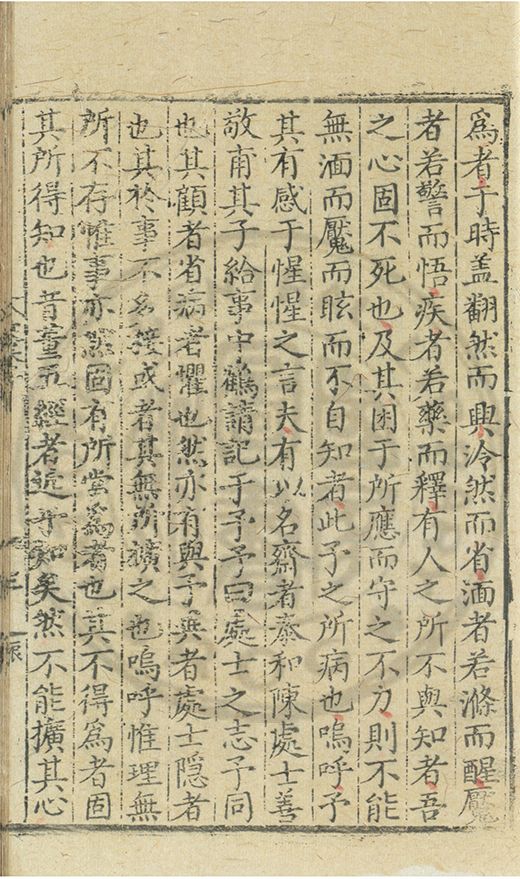 爲者于時盖翻然而興泠然而省湎者若滌而醒魘
者若警而悟疾者若藥而釋有人之所不與知者吾
之心固不死也及其困于所應而守之不力則不能
無湎而魘而眩而不自知者此予之所病也嗚呼予
其有感于惺惺之言夫有以名齋者泰和陳處士善
敬甫其子給事中鶴請記于予予曰處士之志予同
也其顧者省病者懼也然亦有與予異者處士隱者
也其於事不多接或者其無所擴之也嗚呼惟理無
所不存惟事亦然固有所當爲者也其不得爲者固
其所得知也昔董五經者近于知矣然不能擴其心